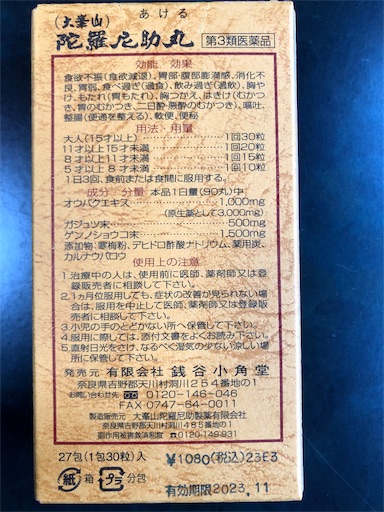 あける
(大峯山)
陀羅尼助丸
第3類医薬品
効能 効果
食欲不振(食欲減退)、胃部・腹部膨満感、消化不
良、胃弱、食べ過ぎ(過食)、飲み過ぎ(過飲)、胸や
け、もたれ(胃もたれ)、胸つかえ、はきけ(むかつ
き、胃のむかつき、二日酔・悪酔のむかつき)、嘔吐、
整腸(便通を整える)、軟便、便秘
用法・用量
大人(15才以上) 1回30粒
11才以上15才未満 1回20粒
8才以上11才未満 1回15粒
5才以上 8才未満 1回10粒
1日3回、食前または食間に服用する。
成分 分量 本品1日量(90丸)中
オウバクエキス 1,000mg
(原生薬として3,000mg)
ガジュツ末 500mg
ゲンノショウコ末 1,500mg
添加物:寒梅粉、デヒドロ酢酸ナトリウム、薬用炭、
カルナウバロウ
使用上の注意
1.治療中の人は、使用前に医師、薬剤師又は登
録販売者に相談して下さい。
2.1ヵ月位服用しても、症状の改善が見られない場
合は、服用を中止して医師、薬剤師又は登録販
売者に相談して下さい。
3.小児の手のとどかない所へ保管して下さい。
4.服用に際しては、添付文書をよくお読み下さい。
5.直射日光をさけ、なるべく湿気の少ない涼しい場
所に保管して下さい。
発売元 有限会社 銭谷小角堂
奈良県吉野郡天川村洞川254番地の1
お問い合わせ先 0120-146-046
FAX 0747-64-0011
製造販売元 大峯山陀羅尼助製薬有限会社
奈良県吉野郡天川村洞川485番地の1
副作用被害救済制度 0120-149-931
27包(1包30粒)入
¥1080(税込)23E3
紙 箱 プラ 分包
有効期限2023.11